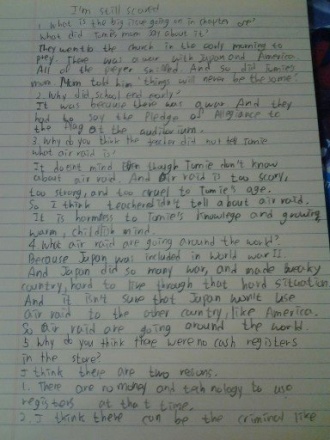 I'm still scared
1. What is the big issue going on in chapter one?
what did Tumie's mom say about it?
They went to the church in the early morning to
pray. There was a war with Japan and America.
All of the player smiled. And so did Tumie's
mom. Mom told him "things will never be the same".
2. Why did school end early?
It was because there was a war. And they
had to say the Pledge of Allegiance to
the flag at the auditorium.
3. Why do you think the teacher did not tell Tumie
what air raid is?
It doesnt mind then though Tumie don't know
about air raid. And air raid is too scary,
too strong, and too cruel to Tumie's age.
So I think teacher didn't tell about air raid.
It is harmness to Tumie's knowlege and growing,
warm, childlish mind.
4. What air raid are going around the world?
Because Japan was included in World war II.
And Japan did so many war, and made
country, hard to live through that hard situation.
And it isn't sure that Japan won't use
air raid to the other country, like America.
So air raid are going around the world.
5. Why do you think there were no cash registers
in the store?
I think there are two resuns.
1. There are no money and technology to use
registers at that time.
2. I think there can be the criminal like